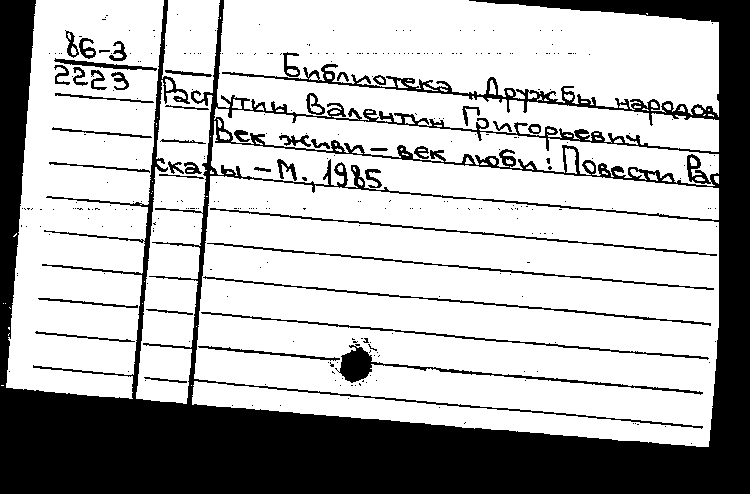 86-3
2223
Библиотека „Дружбы народов
Распутин, Валентин Григорьевич.
Век живи – век люби : Повести. Рас
сказы. – М., 1985.